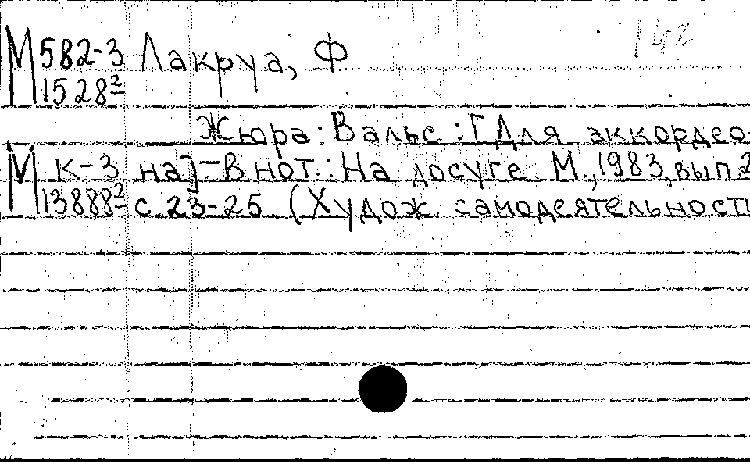 142
М 582-3 Лакруа, Ф
1528²
Жюра: Вальс: [Для аккордео-
М к-3 на]-В нот.: На досуге. М., 1983, вып 2
13888² с 23-25 (Худож самодеятельност